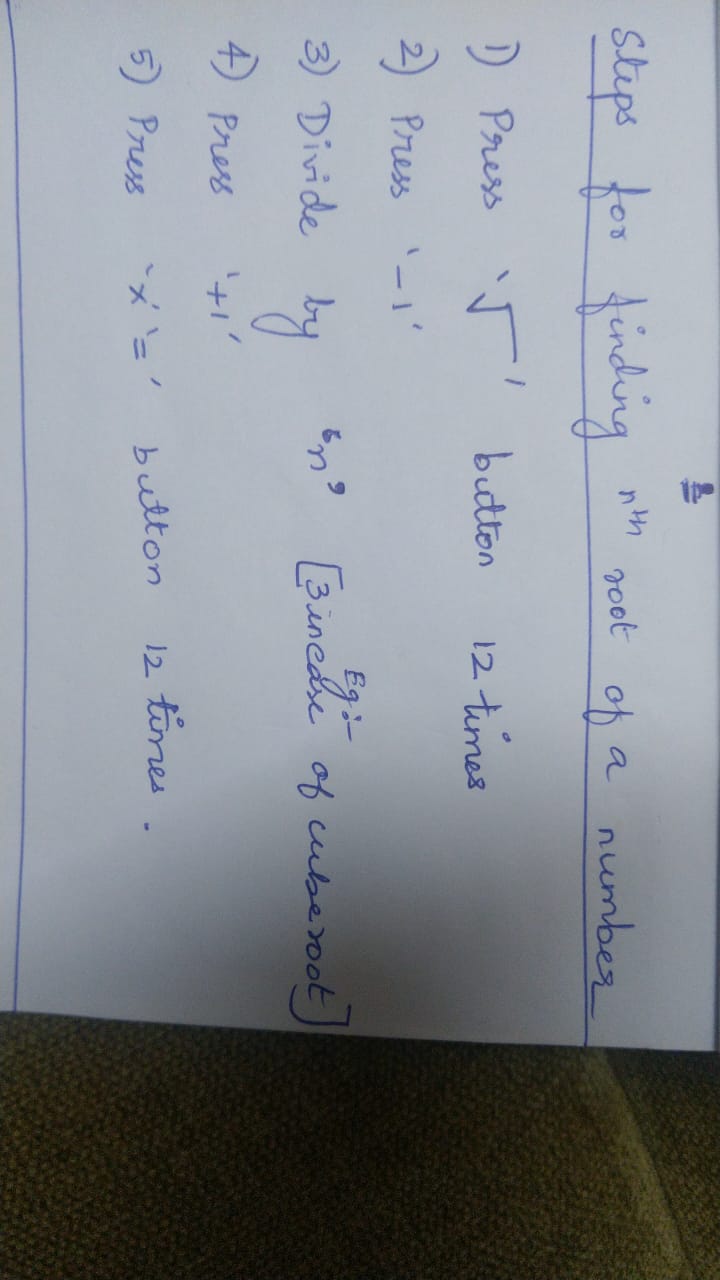 Steps for finding nth root of a number
1) Press '√' button 12 times
2) Press '-1'
3) Divide by "n" [Eg:- 3 incase of cuberoot]
4) Press '+1'
5) Press 'x' '=' button 12 times.